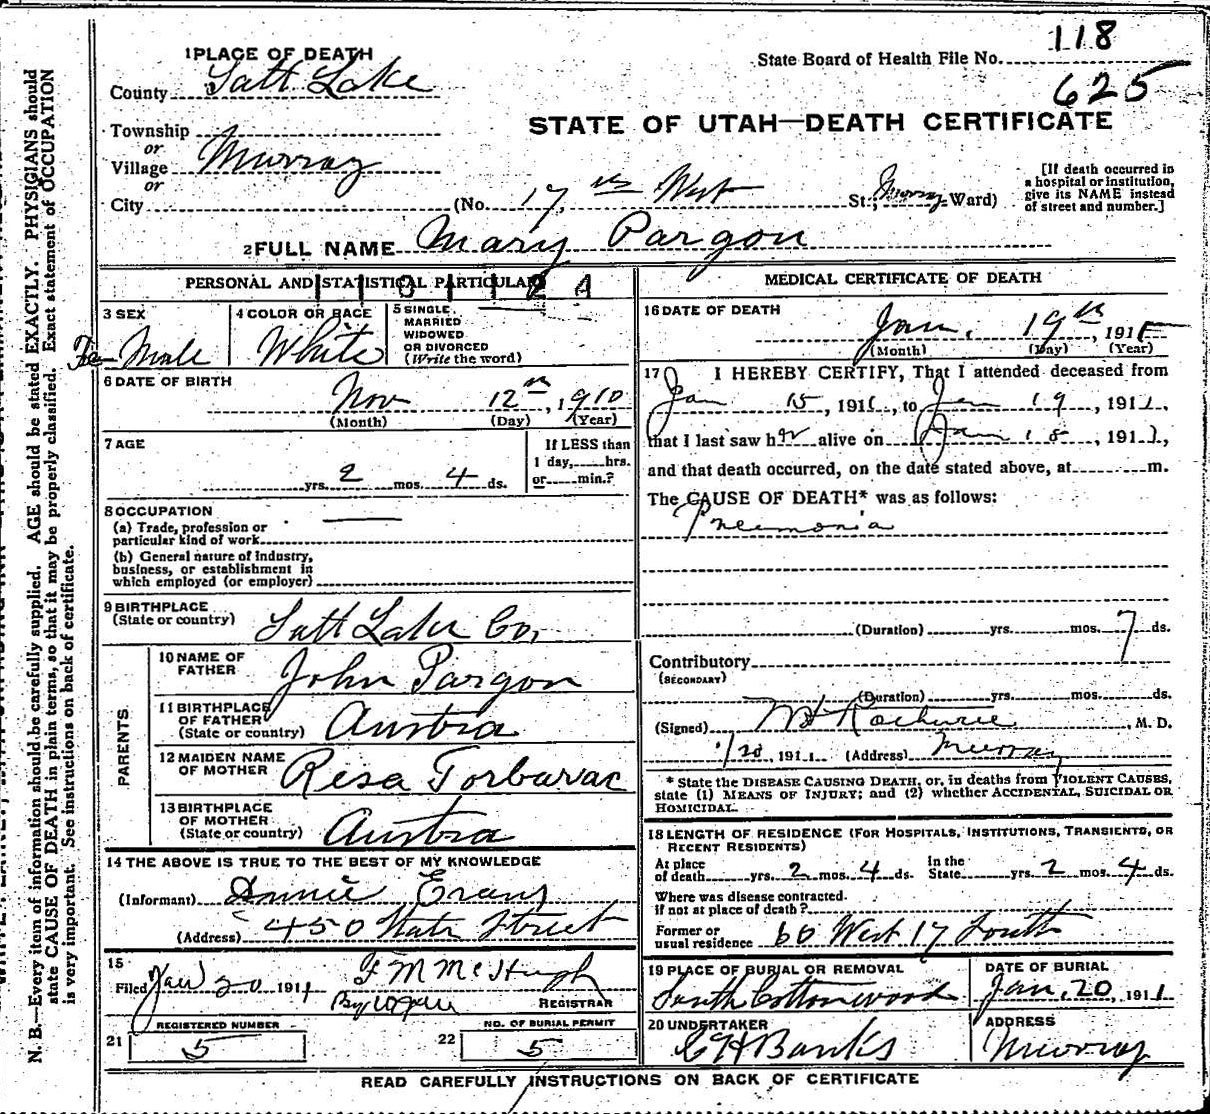 1 PLACE OF DEATH
County Salt Lake
State Board of Health File No. 118
625
STATE OF UTAH—DEATH CERTIFICATE
Township
or
Village Murray
or
City (No. 17, th West St.; Murray Ward)
[If death occurred in
a hospital or institution,
give its NAME instead
of street and number.]
2 FULL NAME Mary Pargon
PERSONAL AND STATISTICAL PARTICULARS
3 SEX
Fe Male
4 COLOR OR RACE
White
5 SINGLE,
MARRIED
WIDOWED
OR DIVORCED
(Write the word)
6 DATE OF BIRTH
Nov 12th, 1910
(Month) (Day) (Year)
7 AGE
yrs. 2 mos. 4 ds.
If LESS than
1 day, hrs.
or min.?
8 OCCUPATION
(a) Trade, profession or
particular kind of work
(b) General nature of industry,
business, or establishment in
which employed (or employer)
9 BIRTHPLACE
(State or country) Salt Lake Co,
PARENTS
10 NAME OF
FATHER John Pargon
11 BIRTHPLACE
OF FATHER
(State or country) Austra
12 MAIDEN NAME
OF MOTHER Resa Torbarac
13 BIRTHPLACE
OF MOTHER
(State or country) Austra
14 THE ABOVE IS TRUE TO THE BEST OF MY KNOWLEDGE
(Informant) Annie Evans
(Address) 450 State Street
15
Filed Jan 20 1911 F M McHugh
By
REGISTRAR
REGISTERED NUMBER
21 5
NO. OF BURIAL PERMIT
22 5
MEDICAL CERTIFICATE OF DEATH
16 DATE OF DEATH
Jan. 19th, 191
(Month) (Day) (Year)
17 I HEREBY CERTIFY, That I attended deceased from
Jan 15, 1911, to Jan 19, 1911,
that I last saw her alive on Jan 18, 1911,
and that death occurred, on the date stated above, at m.
The CAUSE OF DEATH* was as follows:
Pneumonia
(Duration) yrs. mos. 7 ds.
Contributory
(SECONDARY)
(Duration) yrs. mos. ds.
(Signed) M. D.
1/20, 1911 (Address) Murray
* State the DISEASE CAUSING DEATH, or, in deaths from VIOLENT CAUSES,
state (1) MEANS OF INJURY; and (2) whether ACCIDENTAL, SUICIDAL OR
HOMICIDAL.
18 LENGTH OF RESIDENCE (FOR HOSPITALS, INSTITUTIONS, TRANSIENTS, OR
RECENT RESIDENTS)
At place
of death yrs. 2 mos. 4 ds.
In the
State yrs. 2 mos. 4 ds.
Where was disease contracted.
if not at place of death?
Former or
usual residence 60 West 17 South
19 PLACE OF BURIAL OR REMOVAL
South Cottonwood
DATE OF BURIAL
Jan, 20, 1911
20 UNDERTAKER
C H Banks
ADDRESS
Murray
READ CAREFULLY INSTRUCTIONS ON BACK OF CERTIFICATE
N. B.—Every item of information should be carefully supplied. AGE should be stated EXACTLY. PHYSICIANS should
state CAUSE OF DEATH in plain terms, so that it may be properly classified. Exact statement of OCCUPATION
is very important. See instructions on back of certificate.